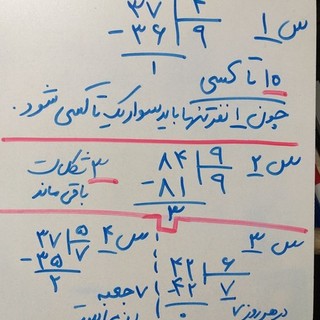 س ۱
۳۷ ۴
-۳۶ ۹
۱
۱۰ تا کسی
چون ۱ نفر تنها باید سوار یک تاکسی شود.
س ۲
۸۴ ۹
-۸۱ ۹
۳
۳ شکلات
باقی ماند
س ۳
۴۲ ۶
-۴۲ ۷
۰
در هر روز ۷
س ۴
۳۷ ۵
-۳۵ ۷
۲
۷ جعبه